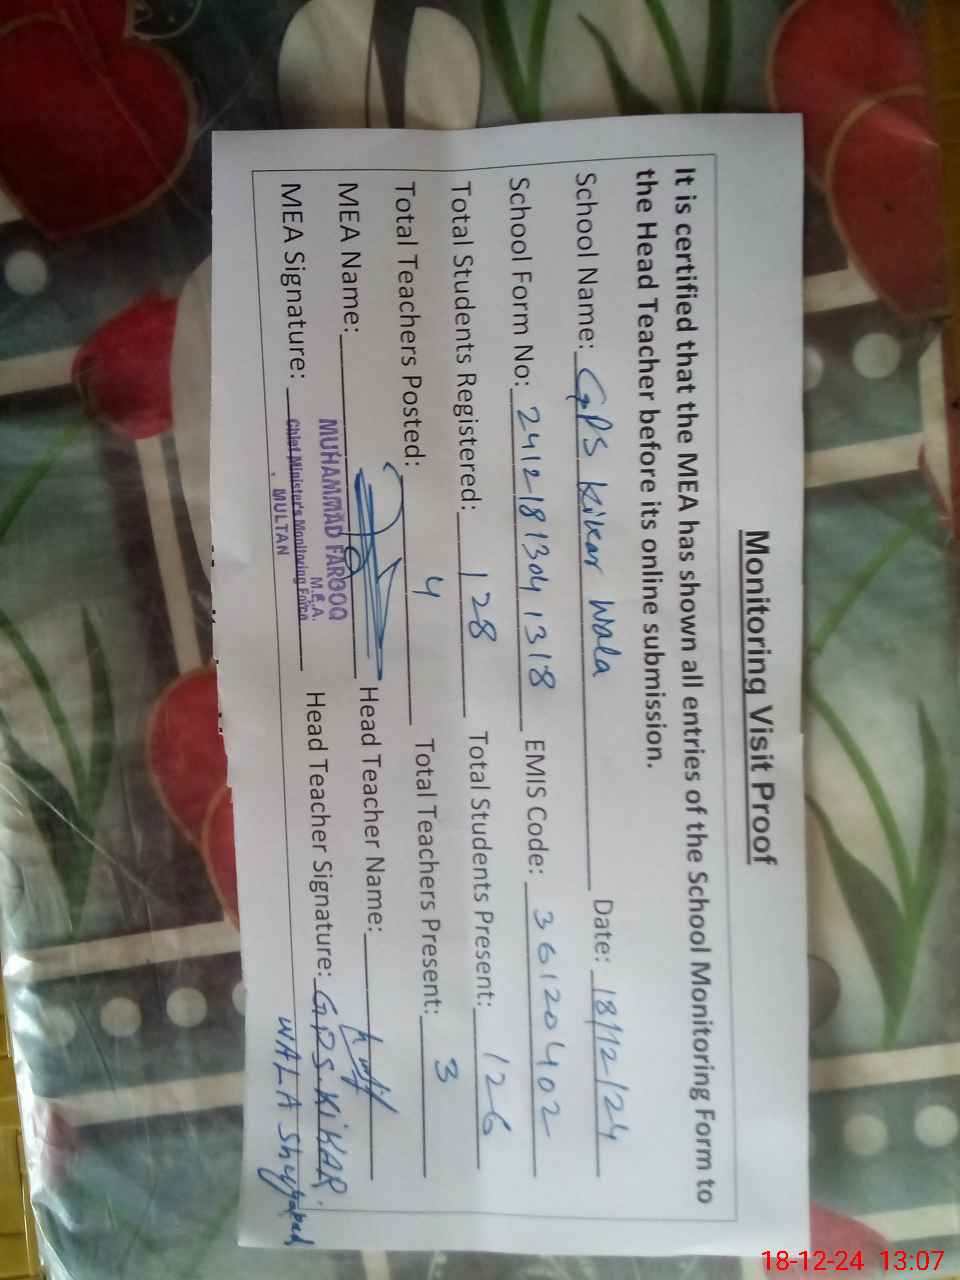 Monitoring Visit Proof
It is certified that the MEA has shown all entries of the School Monitoring Form to
the Head Teacher before its online submission.
School Name: GPS Kikar Wala Date: 18/12/24
School Form No: 24121813041318 EMIS Code: 36120402
Total Students Registered: 128 Total Students Present: 126
Total Teachers Posted: 4 Total Teachers Present: 3
MEA Name: Head Teacher Name:
MUHAMMAD FAROOQ
M.E.A.
MEA Signature: Chief Minister's Monitoring Force Head Teacher Signature: GPS. KIKAR
MULTAN
WALA
18-12-24 13:07